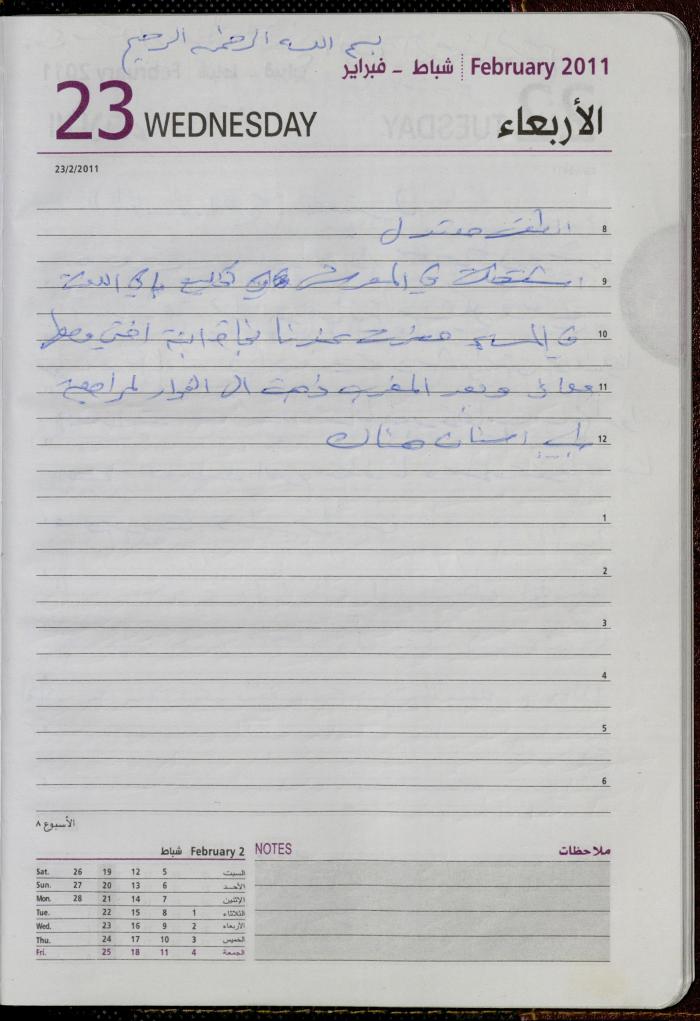 بسم الله الرحمن الرحيم
February 2011 شباط - فبراير
23 WEDNESDAY الأربعاء
23/2/2011
8 الطقس معتدل
9 اشتغلت في المعرش في تخليع باقي
10 في المساء حضرت عندنا نجاة ابنة اختي
11 وبعد المغرب ذهبت الى الفوار لمراجعة
12 طبيب اسنان هناك
1
2
3
4
5
6
الأسبوع ٨
February 2 شباط
NOTES ملاحظات
Sat. 26 19 12 5 السبت
Sun. 27 20 13 6 الأحد
Mon. 28 21 14 7 الإثنين
Tue. 22 15 8 1 الثلاثاء
Wed. 23 16 9 2 الأربعاء
Thu. 24 17 10 3 الخميس
Fri. 25 18 11 4 الجمعة